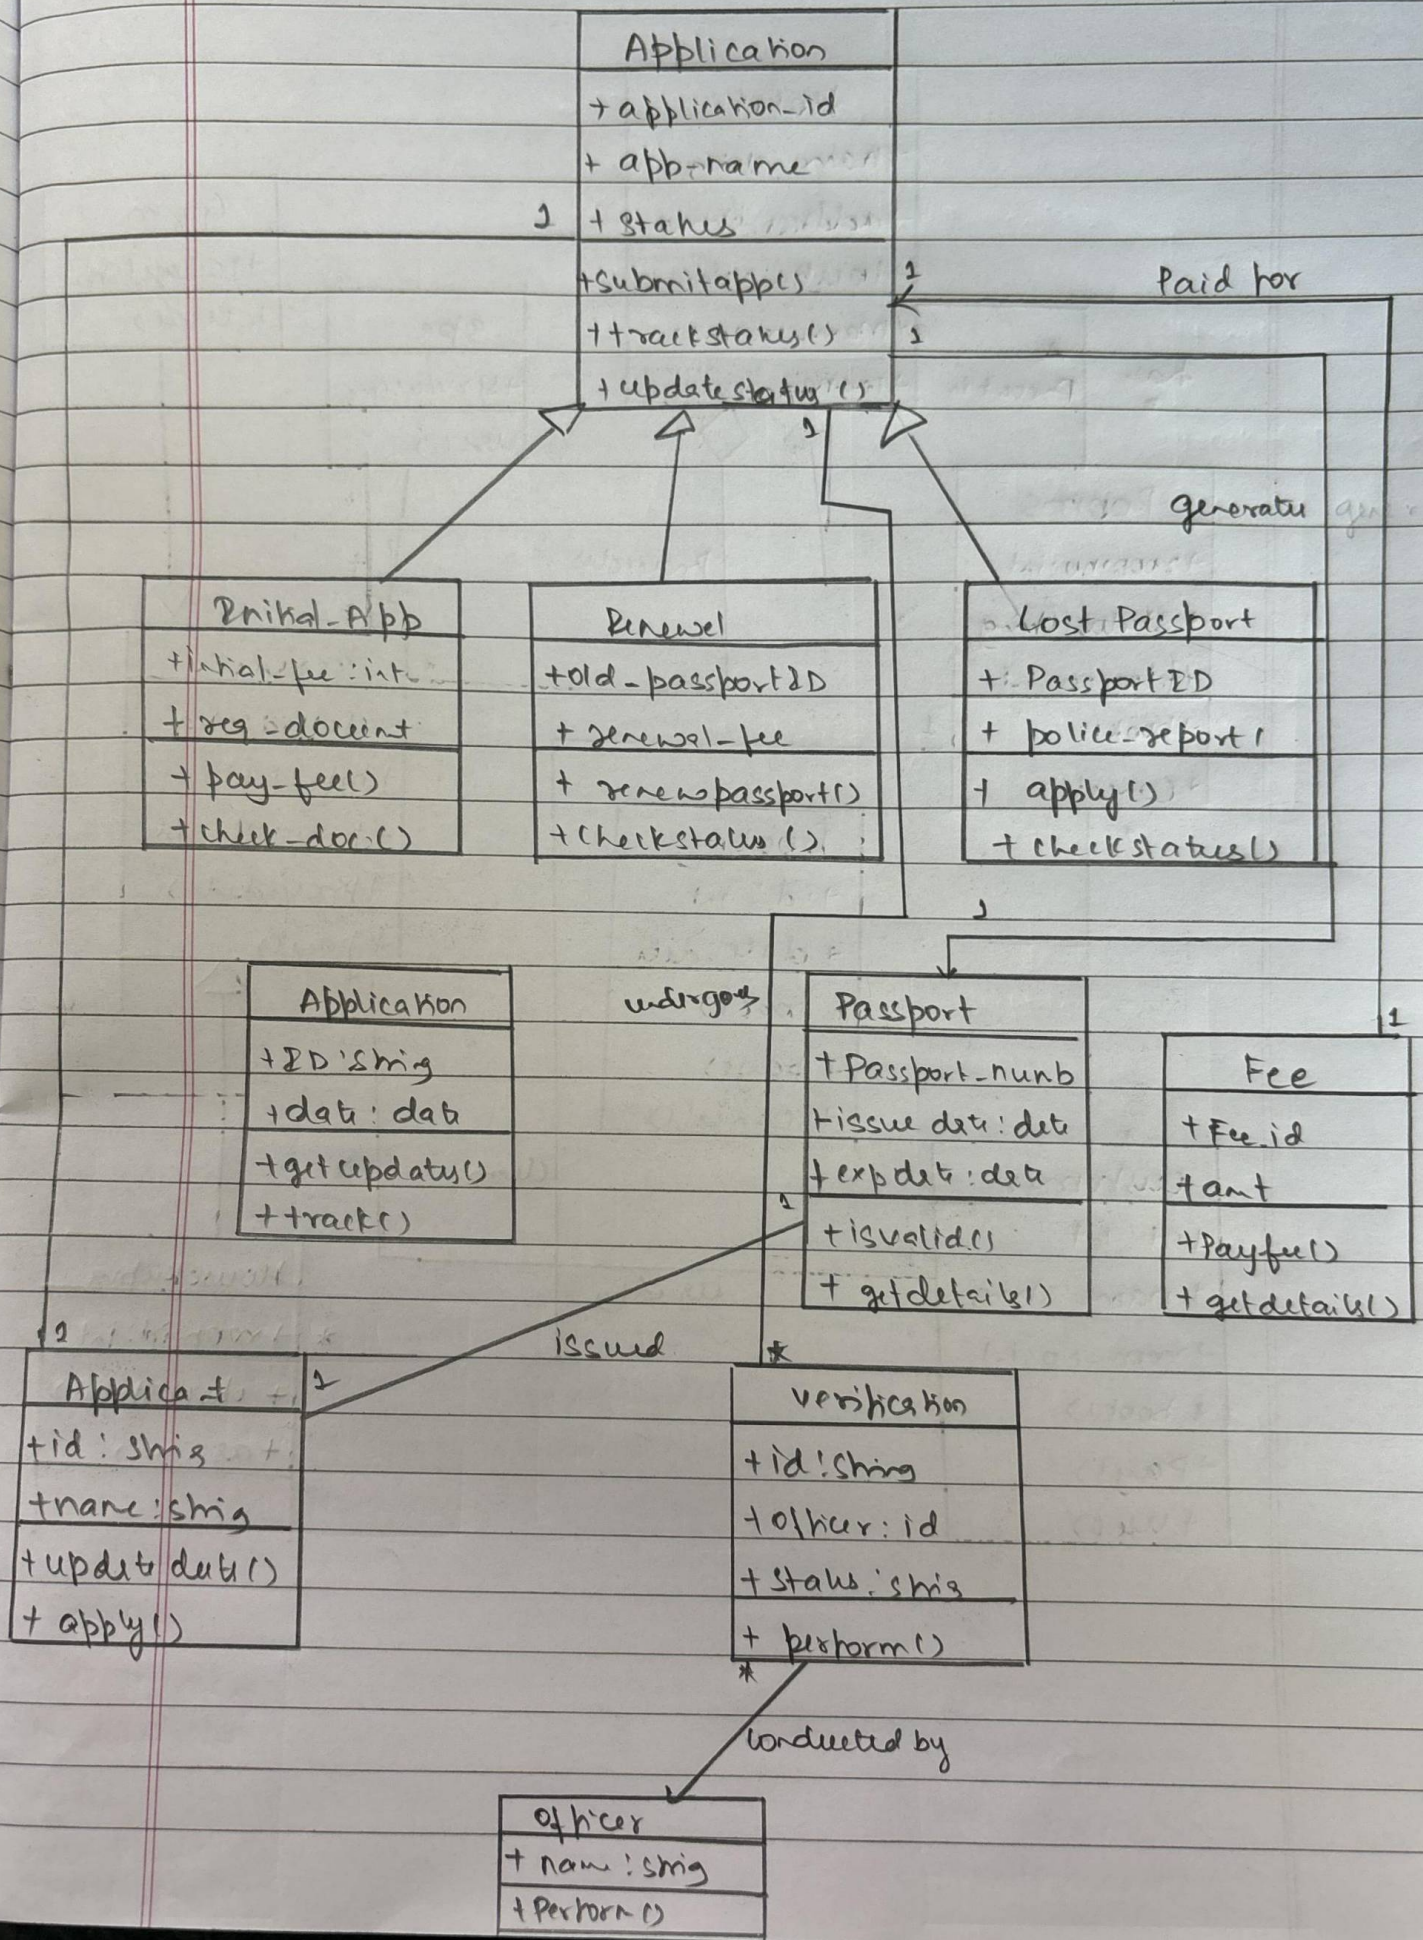 Application
+ application_id
+ app-name
1
+ status
+submitapp()
1
Paid for
+trackstatus()
1
+ updatestatus()
1
generates
Initial_App
+initial-fee : int
+ req-docment
+ pay-fee()
+check-doc()
Renewel
+old-passportID
+ renewal-fee
+ renewpassport()
+checkstatus()
Lost Passport
+ PassportID
+ police-report
+ apply()
+ checkstatus()
1
Application
+ID:String
+date : date
+getupdates()
+track()
undergoes
Passport
+Passport-numb
+issue date : date
+expdate : date
1
+isvalid()
+ getdetails()
1
Fee
+Fee_id
+amt
+Payfee()
+ getdetails()
1
issued
*
Applicat
1
+id : string
+name : string
+update date()
+ apply()
verification
+id : String
+officer : id
+ status : string
+ perform()
*
conducted by
officer
+ name : string
+ Perform()